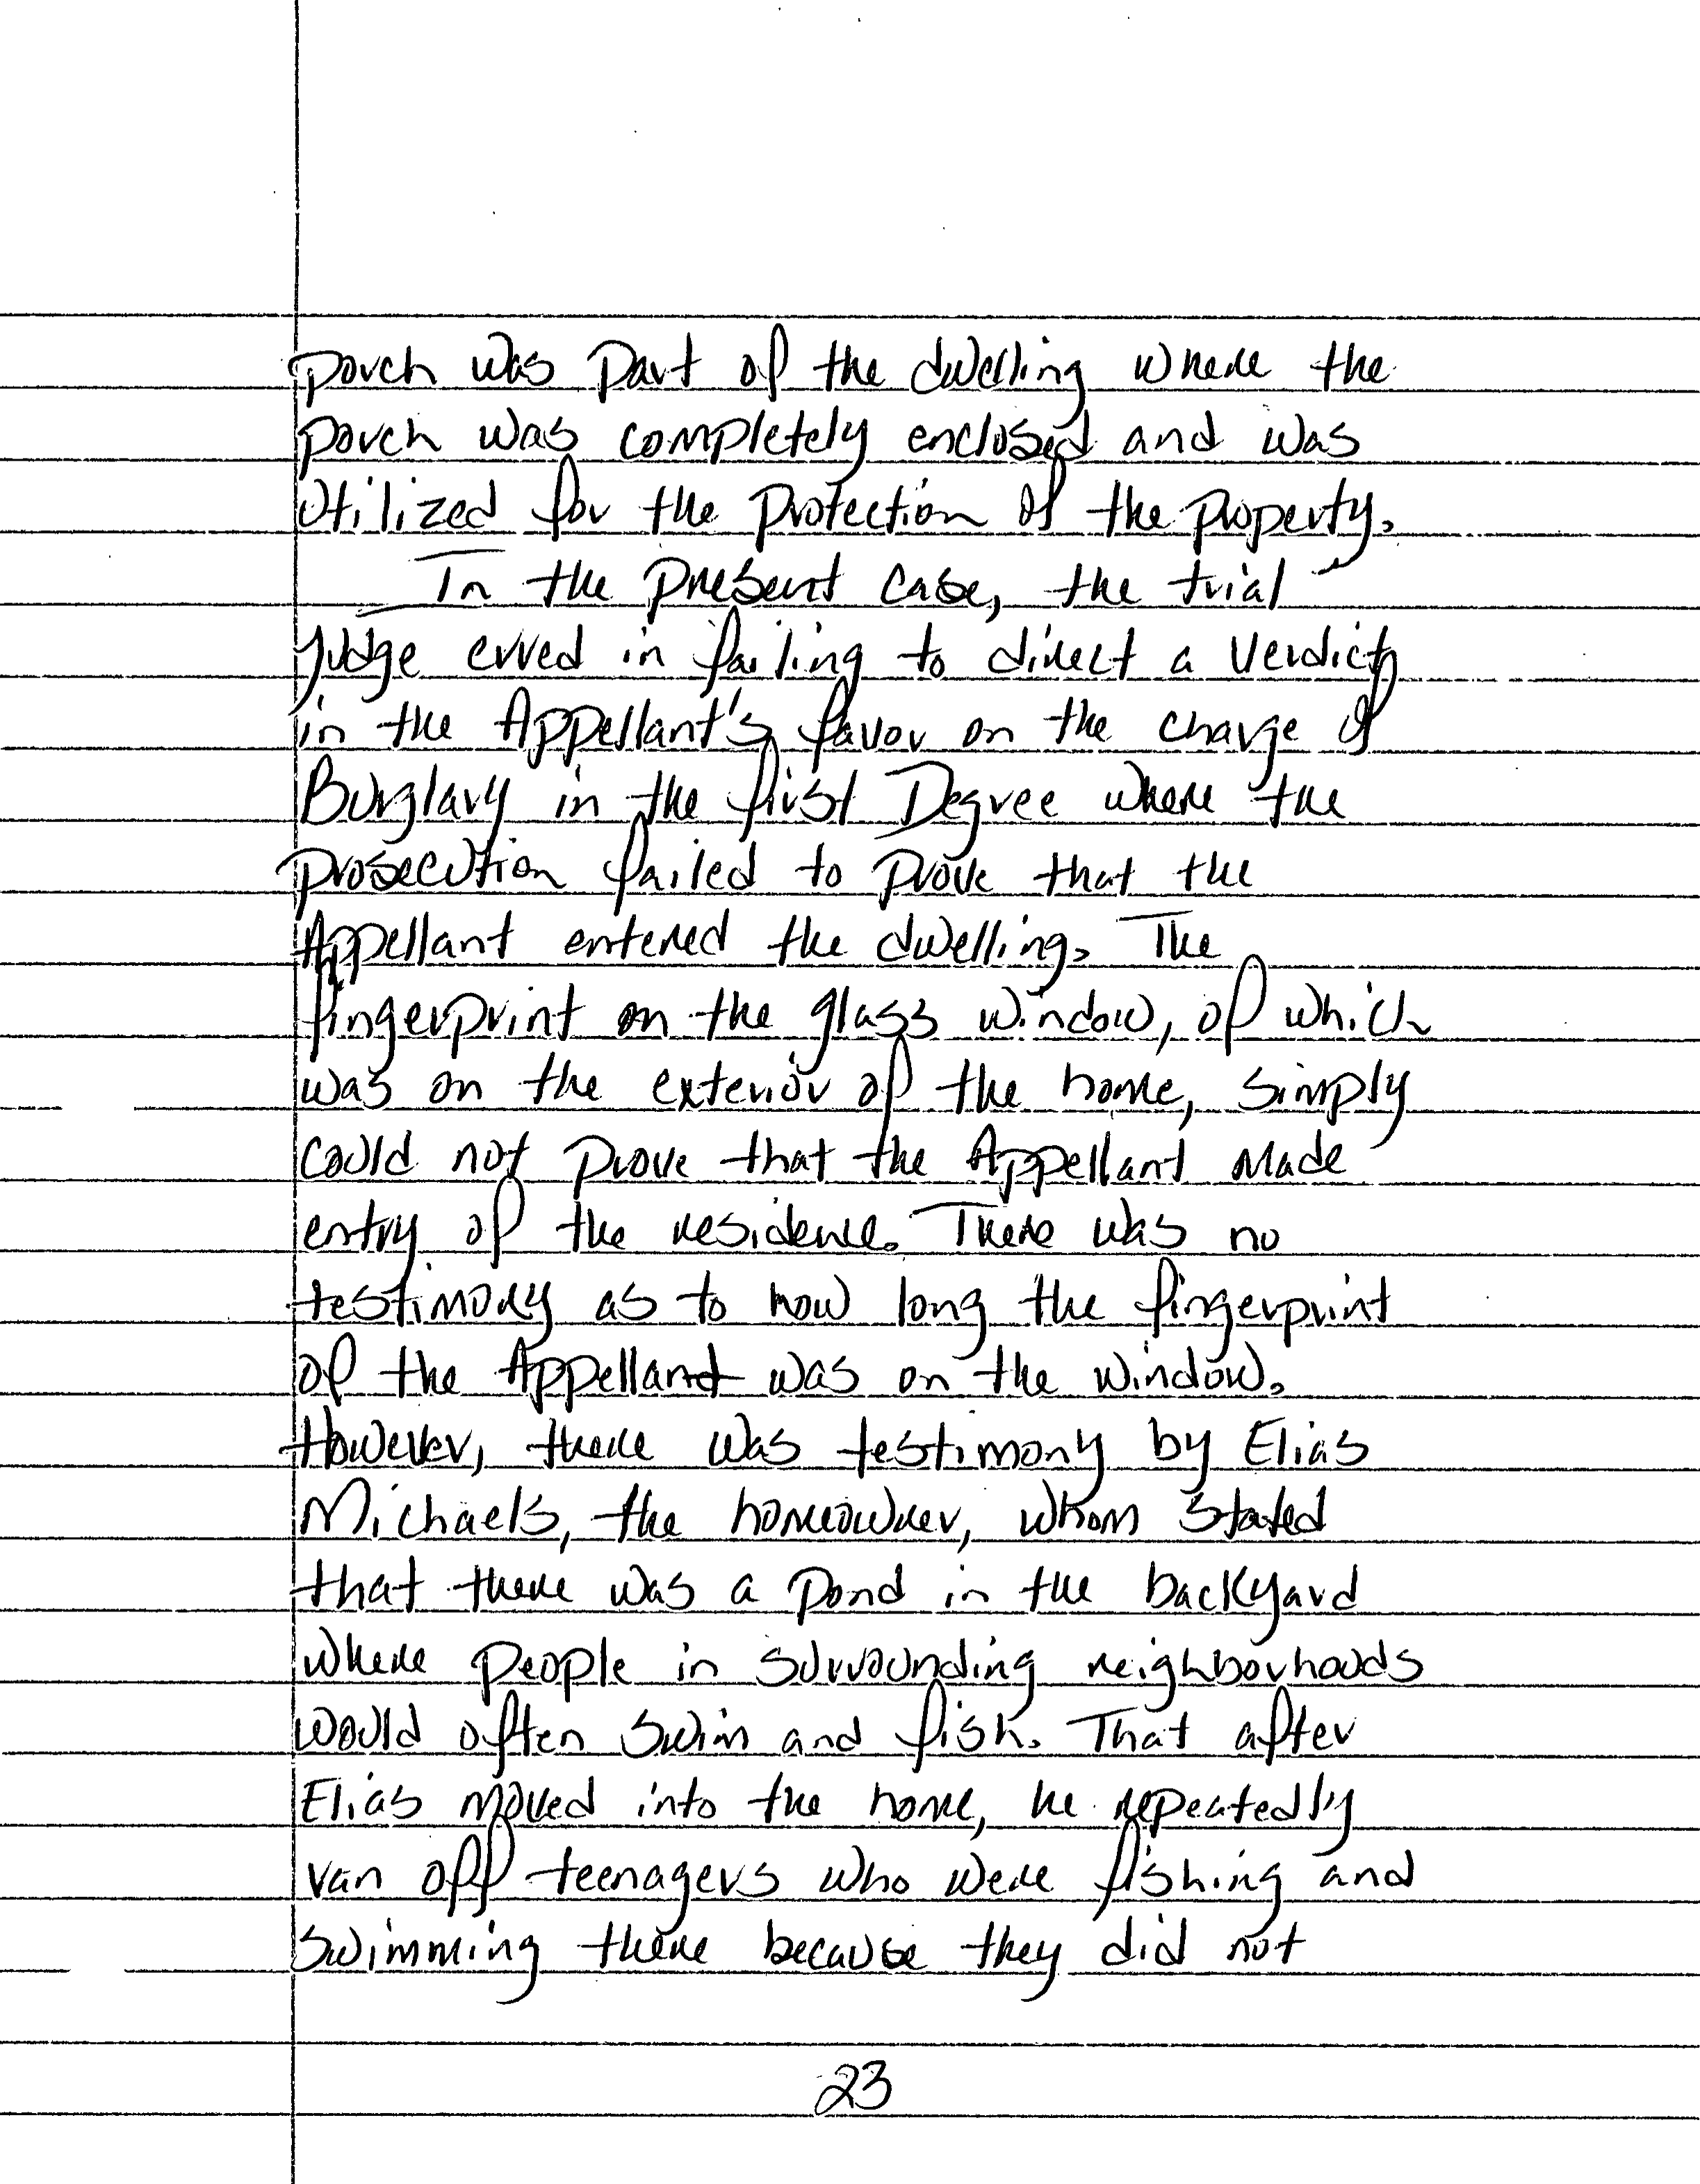 porch was part of the dwelling where the
porch was completely enclosed and was
utilized for the protection of the property.
In the present case, the trial
judge erred in failing to direct a verdict
in the Appellant's favor on the charge of
Burglary in the first Degree where the
prosecution failed to prove that the
Appellant entered the dwelling. The
fingerprint on the glass window, of which
was on the exterior of the home, simply
could not prove that the Appellant made
entry of the residence. There was no
testimony as to how long the fingerprint
of the Appellant was on the window.
However, there was testimony by Elias
Michaels, the homeowner, whom stated
that there was a pond in the backyard
where people in surrounding neighborhoods
would often swim and fish. That after
Elias moved into the home, he repeatedly
ran off teenagers who were fishing and
swimming there because they did not
23